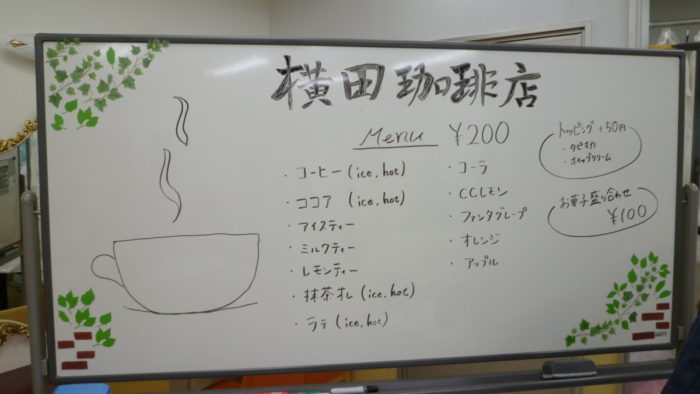 横田珈琲店
Menu ¥200
・コーヒー(ice.hot)
・ココア (ice.hot)
・アイスティー
・ミルクティー
・レモンティー
・抹茶オレ(ice.hot)
・ラテ(ice.hot)
・コーラ
・CCレモン
・ファンタグレープ
・オレンジ
・アップル
トッピング+50円
・タピオカ
・ホイップクリーム
お菓子盛り合わせ
¥100